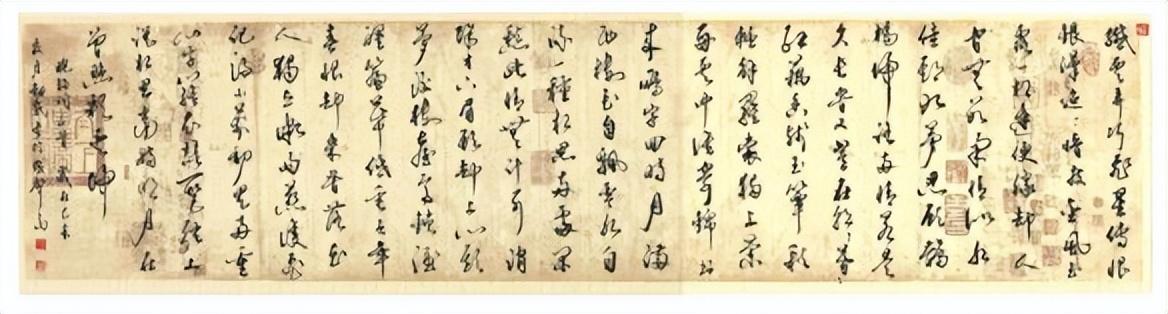 纖雲弄巧飛星傳恨
銀漢迢迢暗度金風玉
露一相逢便勝卻人
間無數柔情似水
佳期如夢忍顧鵲
橋歸路兩情若是
久長時又豈在朝朝暮暮
紅藕香殘玉簟秋
輕解羅裳獨上蘭
舟雲中誰寄錦書
來雁字回時月滿
西樓花自飄零水自
流一種相思兩處閑
愁此情無計可消
除才下眉頭卻上心頭
夢後樓臺高鎖酒
醒簾幕低垂去年
春恨卻來時落花
人獨立微雨燕雙飛
記得小蘋初見兩重
心字羅衣琵琶弦上
說相思當時明月在
曾照彩雲歸
歲在乙未